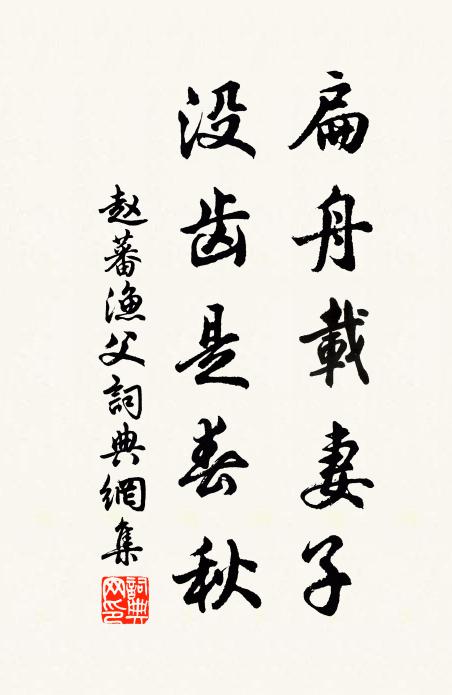 扁舟載妻子
没齿是春秋
赵蕃漁父詞典網集
詞典网印